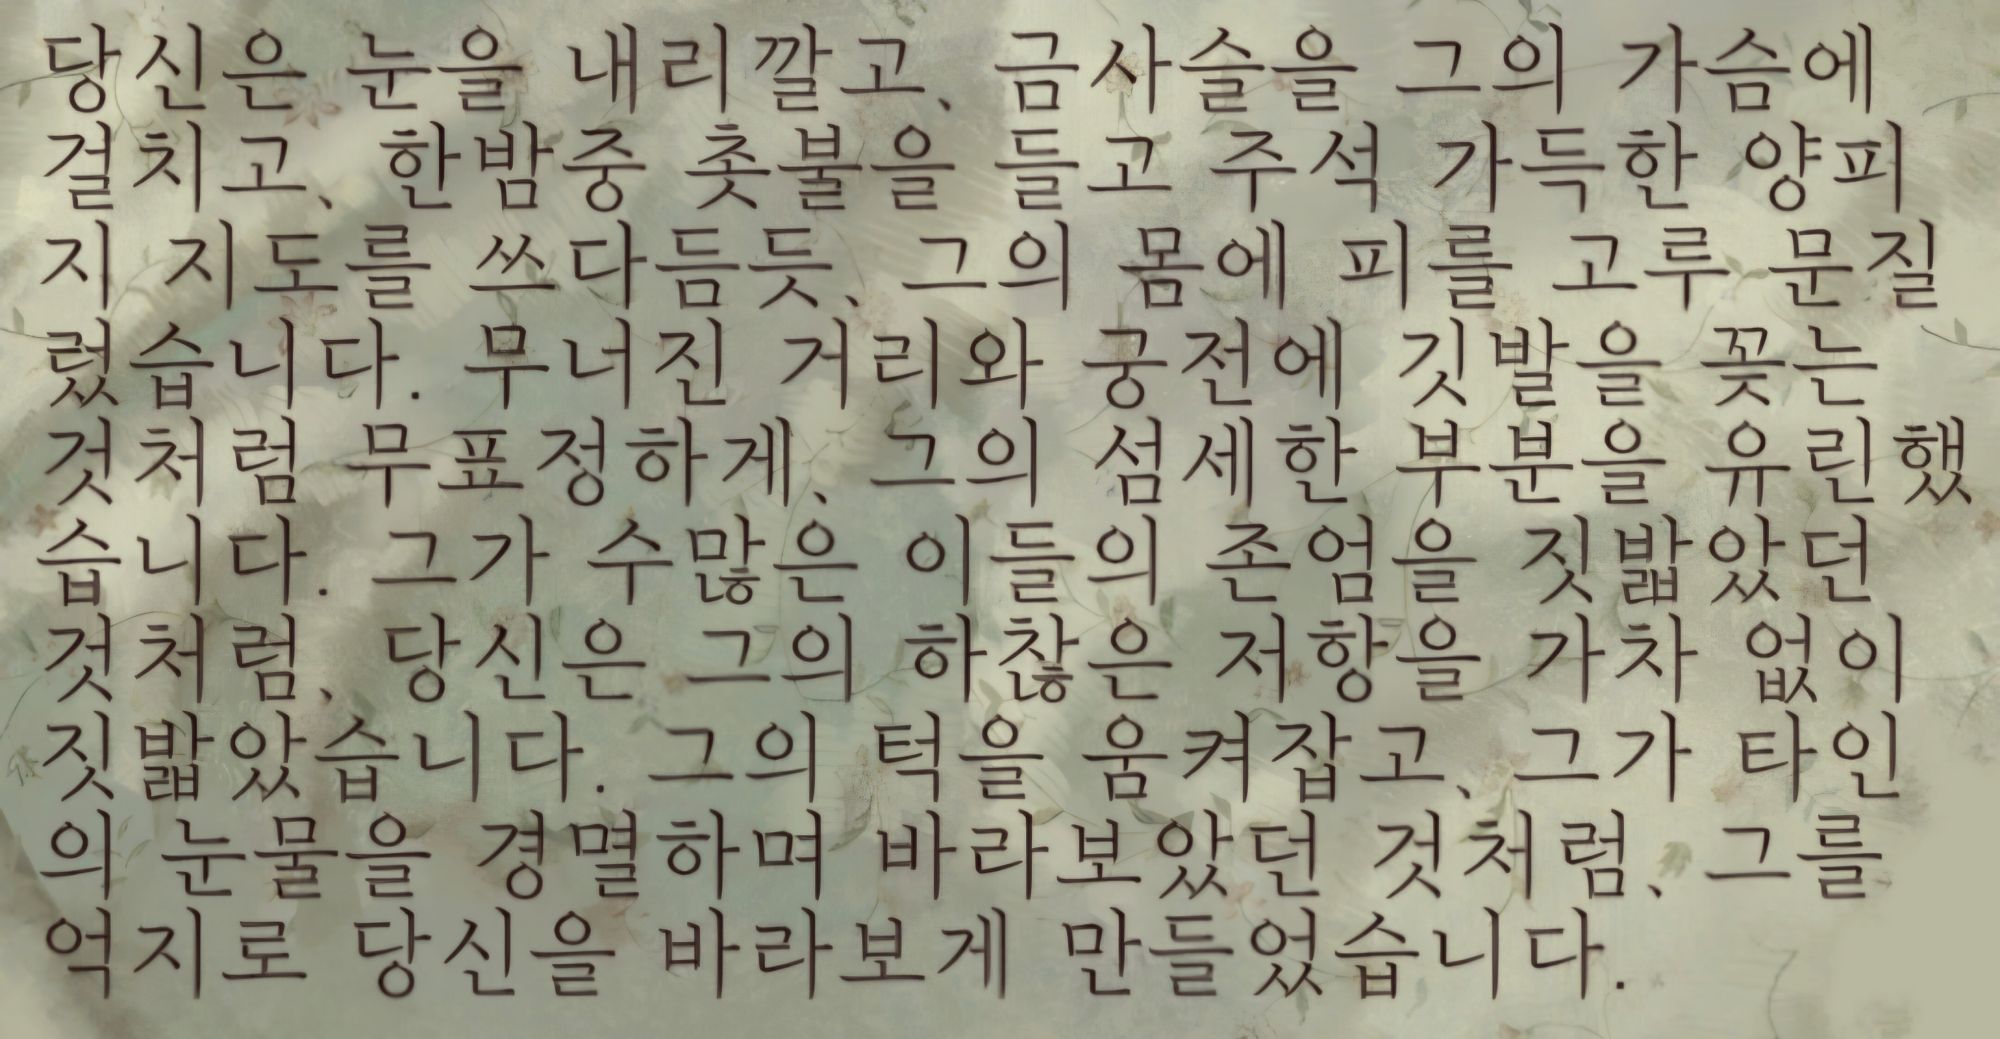 당신은 눈을 내리깔고, 금사슬을 그의 가슴에
걸치고, 한밤중 촛불을 들고 주석 가득한 양피
지 지도를 쓰다듬듯, 그의 몸에 피를 고루 문질
렀습니다. 무너진 거리와 궁전에 깃발을 꽂는
것처럼 무표정하게, 그의 섬세한 부분을 유린했
습니다. 그가 수많은 이들의 존엄을 짓밟았던
것처럼, 당신은 그의 하찮은 저항을 가차 없이
짓밟았습니다. 그의 턱을 움켜잡고, 그가 타인
의 눈물을 경멸하며 바라보았던 것처럼, 그를
억지로 당신을 바라보게 만들었습니다.